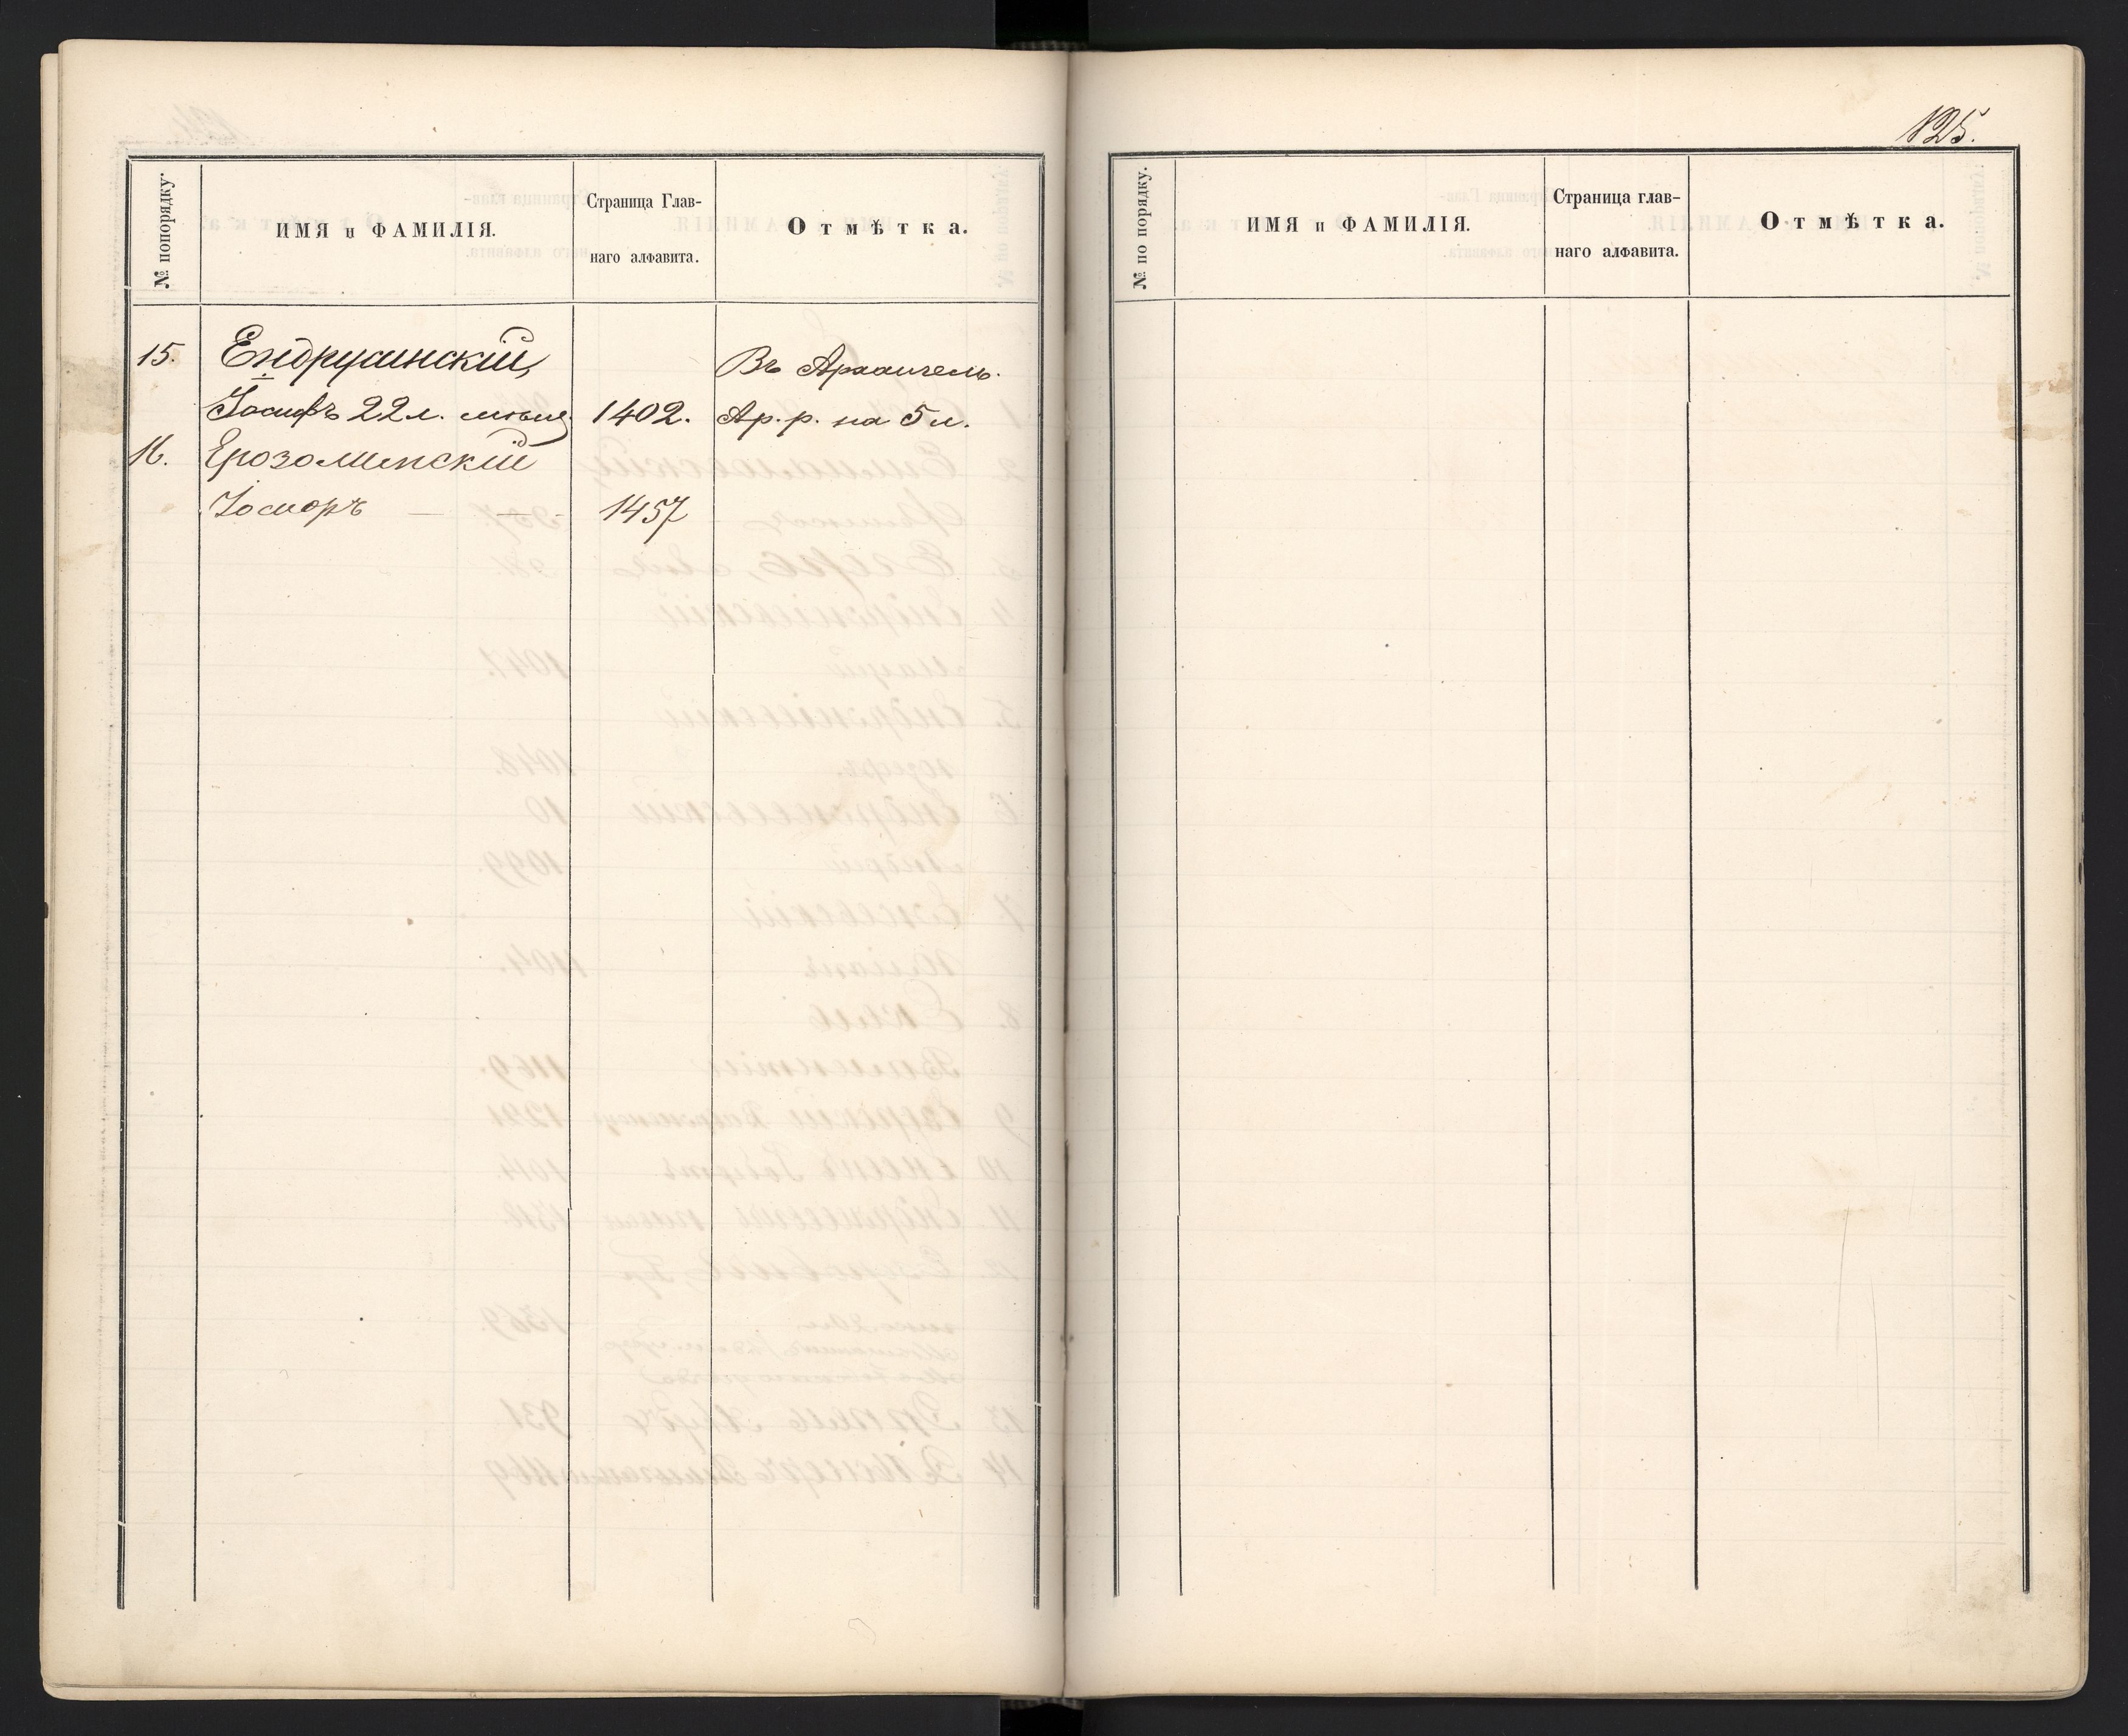 № попорядку.
ИМЯ и ФАМИЛІЯ.
Страница Глав-
наго алфавита.
Отмѣтка.
15. Ендрушинскій,
Іосифъ 22 л. 1402.
Въ Архангель.
Ар. р. на 5 л.
16. Ерозолимскій
Іосифъ — — 1457
125.
№ по порядку.
ИМЯ и ФАМИЛІЯ.
Страница глав-
наго алфавита.
Отмѣтка.